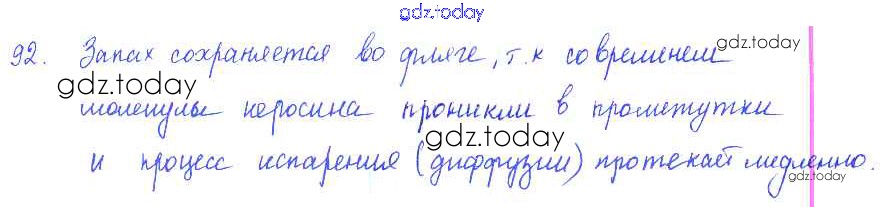 gdz.today
92. Запах сохраняется во фляге, т.к со временем gdz.today
gdz.today
молекулы керосина проникли в промежутки
gdz.today
и процесс испарения (диффузии) протекает медленно.
gdz.today